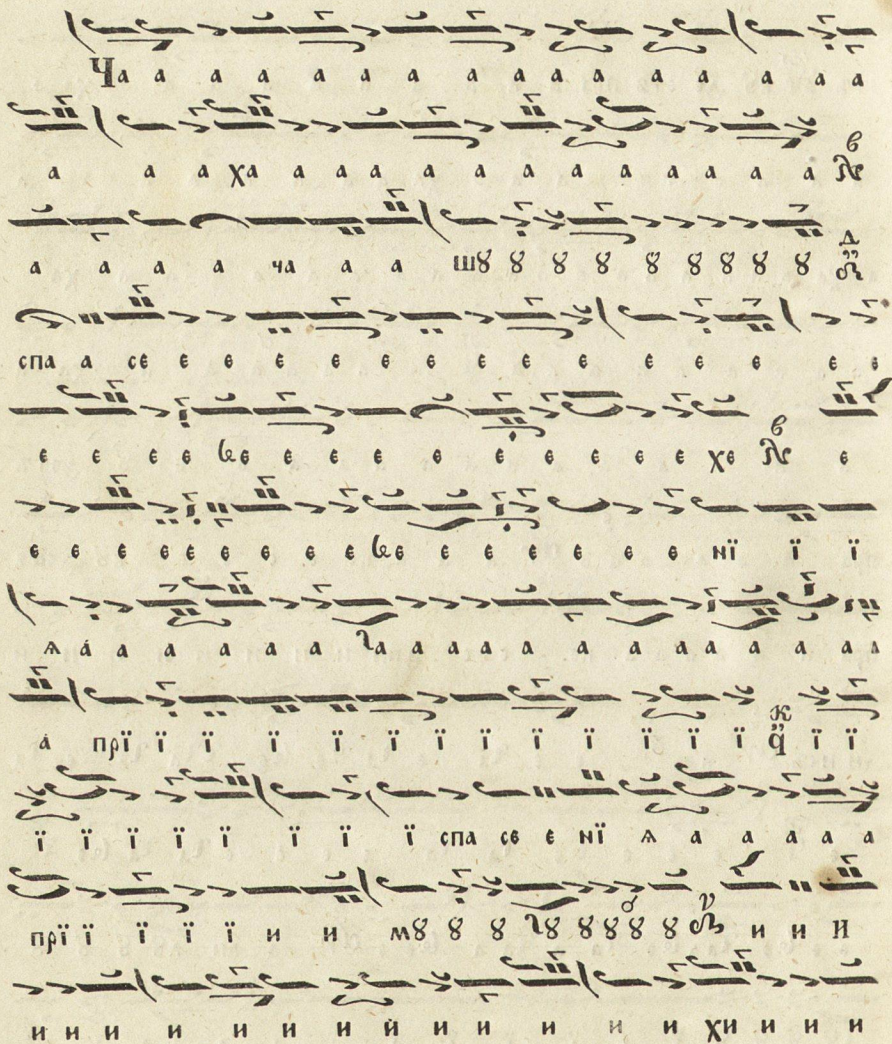 Ча а а а а а а а а а а а а а а а
а а а ха а а а а а а а а а а а а
а а а а ча а а шꙋ ꙋ ꙋ ꙋ ꙋ ꙋ ꙋ ꙋ ꙋ
спа а се е е е е е е е е е е е е е
е е е е ве е е е е е е е е е хе е
е е е е е е е е е ве е е е е е е е нї ї ї
ѧ а́ а а а а а а а а а а а а а а а а а
а́ прї ї ї ї ї ї ї ї ї ї ї ї ї ї ї
ї ї ї ї ї ї ї ї спа се е нї ѧ а а а а а
прї ї ї ї ї и и мꙋ ꙋ ꙋ ꙋ ꙋ ꙋ ꙋ ꙋ и и И
и и и и и и и и и и и и и хи и и и